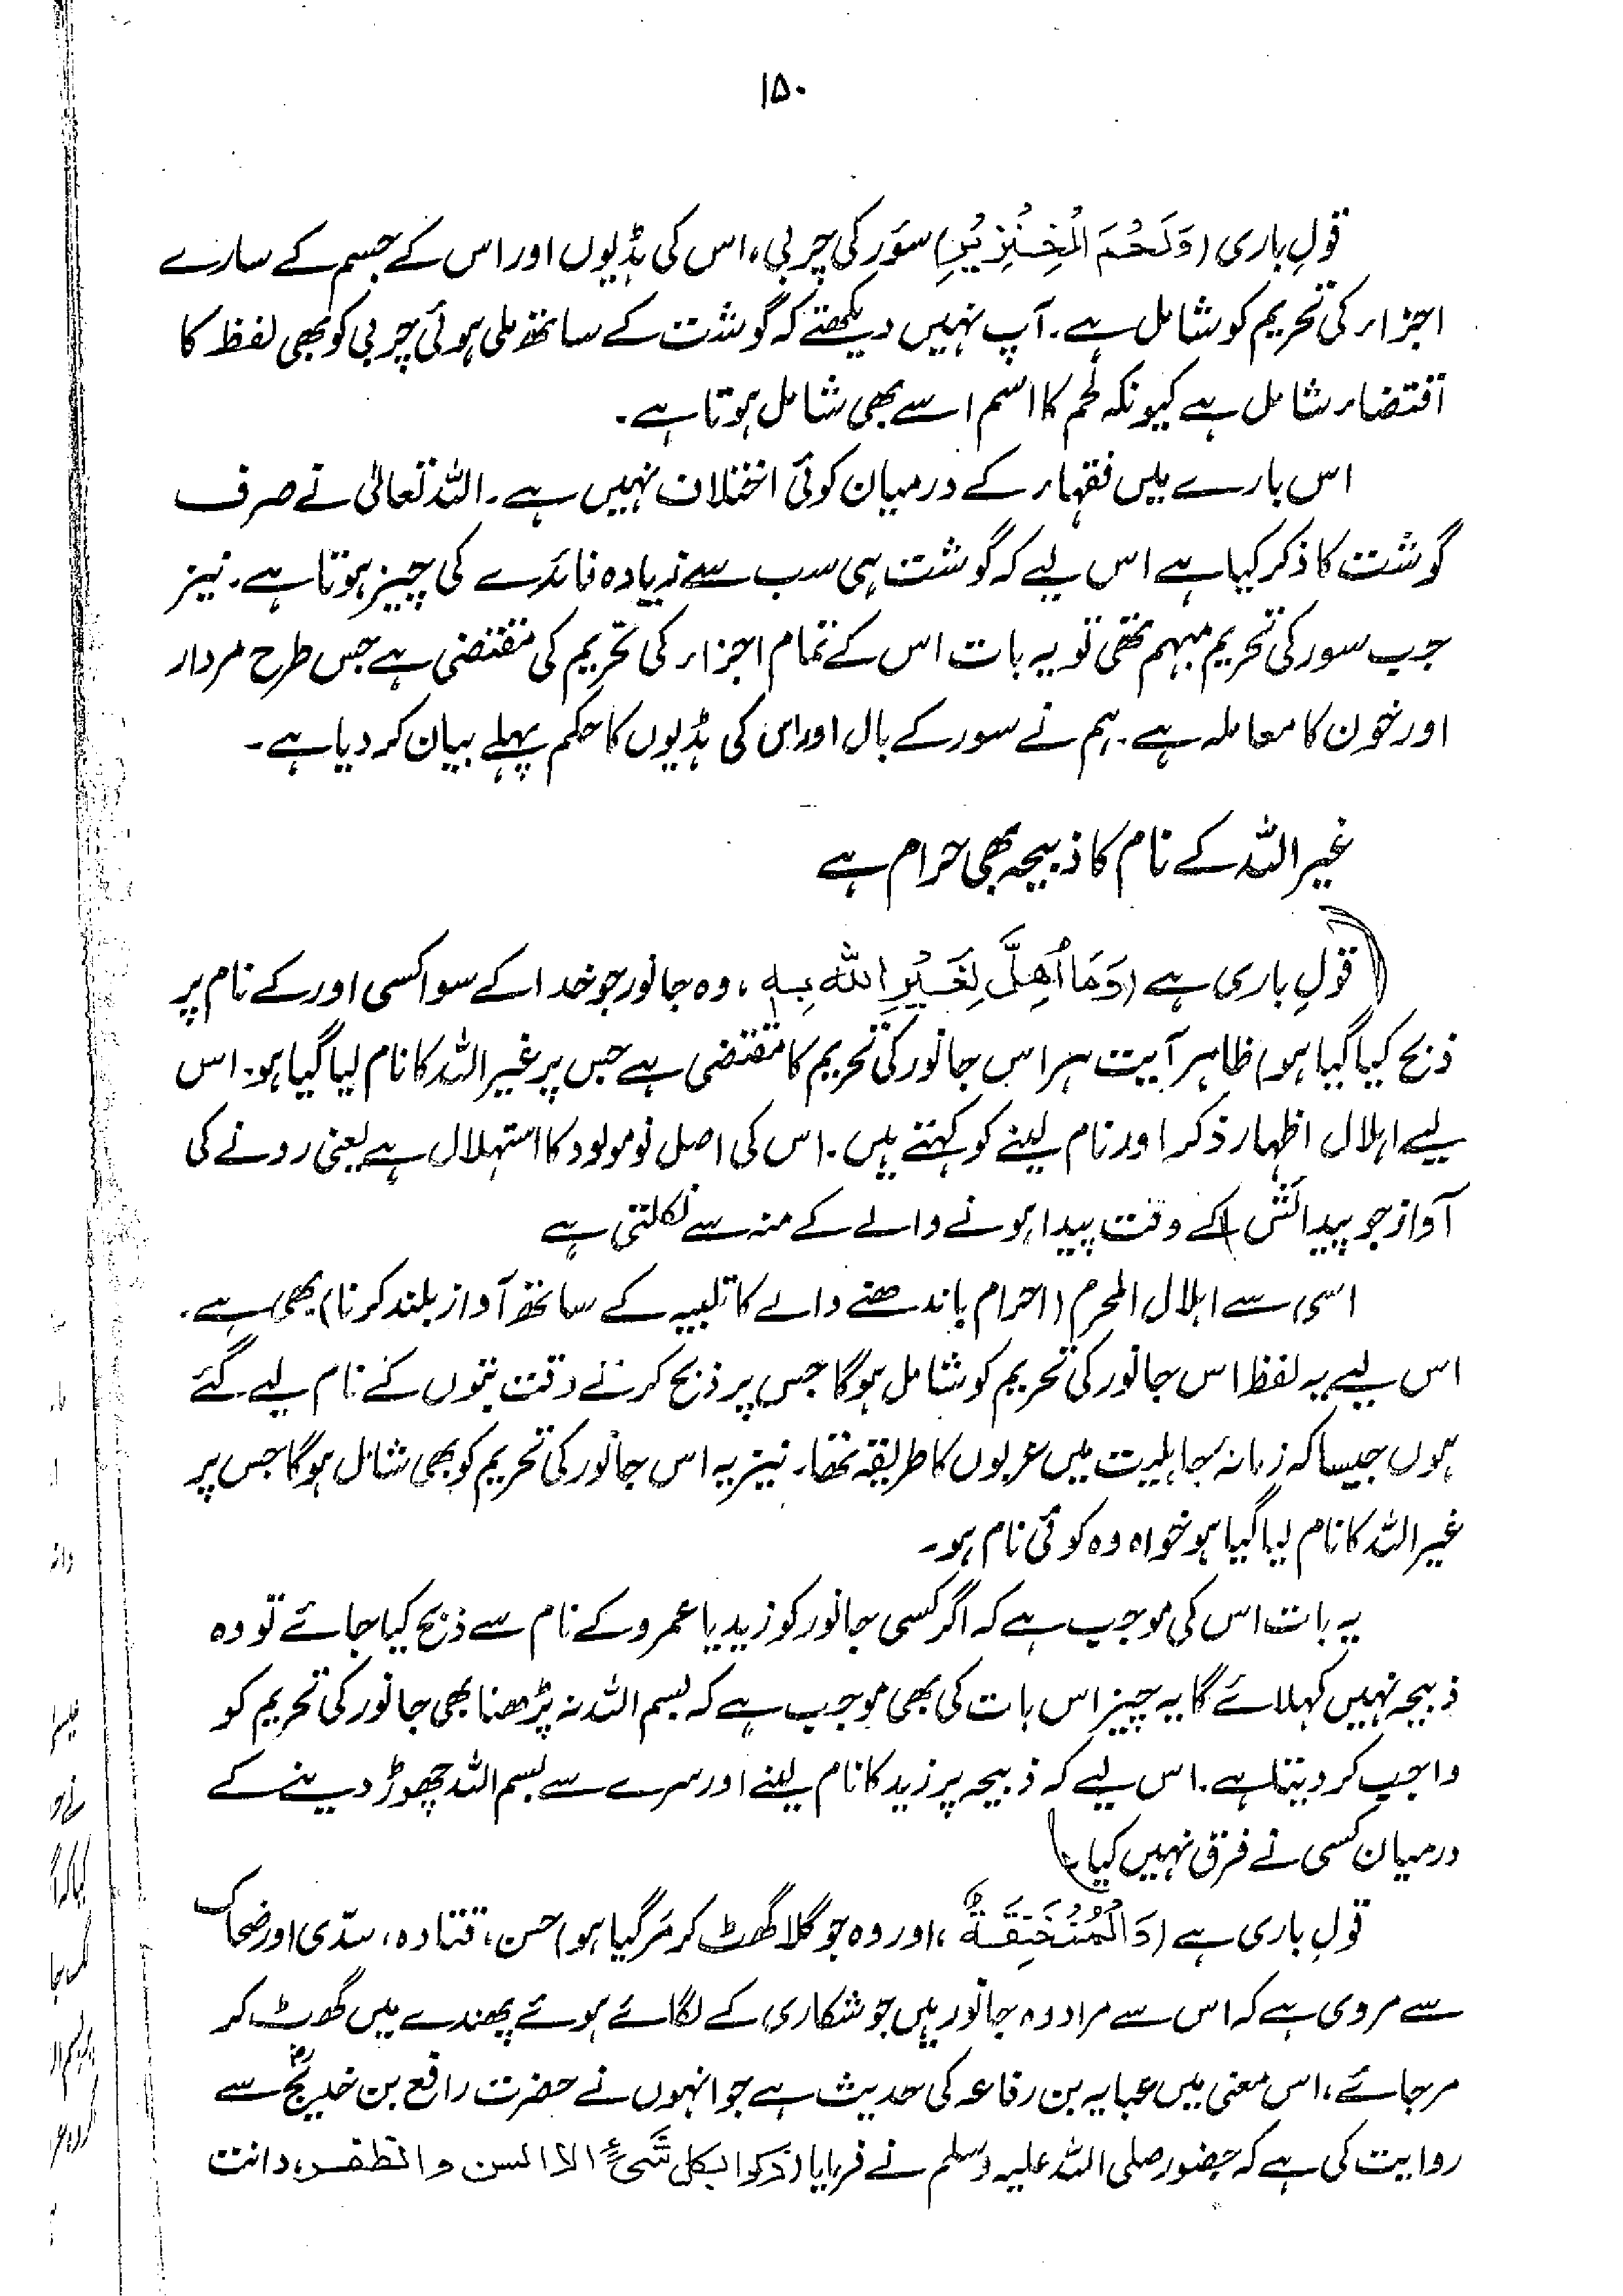 ۱۵۰
قولِ باری (وَلَحْمَ الْخِنْزِيْرِ) سوَر کی چربی، اس کی ہڈیوں اور اس کے جسم کے سارے
اجزاء کی تحریم کو شامل ہے۔ آپ نہیں دیکھتے کہ گوشت کے ساتھ ملی ہوئی چربی کو بھی لفظ کا
اقتضاء شامل ہے کیونکہ لحم کا اسم اسے بھی شامل ہوتا ہے۔
اس بارے میں فقہاء کے درمیان کوئی اختلاف نہیں ہے۔ اللہ تعالیٰ نے صرف
گوشت کا ذکر کیا ہے اس لیے کہ گوشت ہی سب سے زیادہ فائدے کی چیز ہوتا ہے۔ نیز
جب سور کی تحریم مبہم تھی تو یہ بات اس کے تمام اجزاء کی تحریم کی مقتضی ہے جس طرح مردار
اور خون کا معاملہ ہے۔ ہم نے سور کے بال اور اس کی ہڈیوں کا حکم پہلے بیان کر دیا ہے۔
غیر اللہ کے نام کا ذبیحہ بھی حرام ہے
قولِ باری ہے (وَمَا اُهِلَّ لِغَيْرِ اللّٰهِ بِهٖ، وہ جانور جو خدا کے سوا کسی اور کے نام پر
ذبح کیا گیا ہو) ظاہر آیت ہر اس جانور کی تحریم کا مقتضی ہے جس پر غیر اللہ کا نام لیا گیا ہو۔ اس
لیے اہلال اظہار ذکر اور نام لینے کو کہتے ہیں۔ اس کی اصل نومولود کا استہلال ہے یعنی رونے کی
آواز جو پیدائش کے وقت پیدا ہونے والے کے منہ سے نکلتی ہے
اسی سے اہلال المحرم (احرام باندھنے والے کا تلبیہ کے ساتھ آواز بلند کرنا) بھی ہے۔
اس لیے یہ لفظ اس جانور کی تحریم کو شامل ہوگا جس پر ذبح کرنے وقت بتوں کے نام لیے گئے
ہوں جیسا کہ زمانۂ جاہلیت میں عربوں کا طریقہ تھا۔ نیز یہ اس جانور کی تحریم کو بھی شامل ہوگا جس پر
غیر اللہ کا نام لیا گیا ہو خواہ وہ کوئی نام ہو۔
یہ بات اس کی موجب ہے کہ اگر کسی جانور کو زید یا عمرو کے نام سے ذبح کیا جائے تو وہ
ذبیحہ نہیں کہلائے گا یہ چیز اس بات کی بھی موجب ہے کہ بسم اللہ نہ پڑھنا بھی جانور کی تحریم کو
واجب کر دیتا ہے۔ اس لیے کہ ذبیحہ پر زید کا نام لینے اور سرے سے بسم اللہ چھوڑ دینے کے
درمیان کسی نے فرق نہیں کیا۔
قولِ باری ہے (وَالْمُنْخَنِقَةُ، اور وہ جو گلا گھٹ کر مَر گیا ہو) حسن، قتادہ، سدّی اور ضحاک
سے مروی ہے کہ اس سے مراد وہ جانور ہیں جو شکاری کے لگائے ہوئے پھندے میں گھٹ کر
مر جائے، اس معنی میں عبایہ بن رفاعہ کی حدیث ہے جو انہوں نے حضرت رافع بن خدیجؓ سے
روایت کی ہے کہ حضور صلی اللہ علیہ وسلم نے فرمایا (ذکوا بکل شَیْءٍ الا السن والظفر، دانت